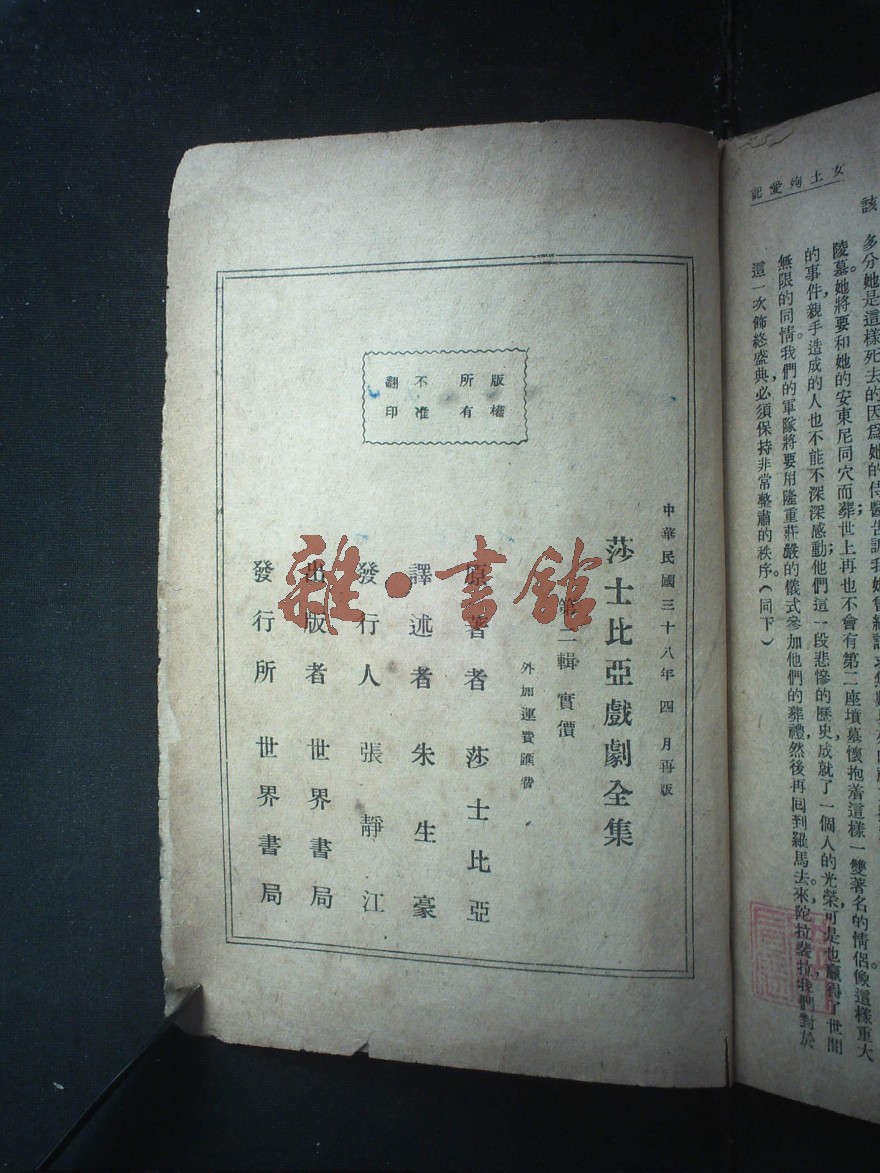 女王殉愛記
該
多分她是這樣死去的因爲她的侍醫告訴我她曾經訪求無數
陵墓。她將要和她的安東尼同穴而葬;世上再也不會有第二座墳墓懷抱着這樣一雙著名的情侶。像這樣重大
的事件,親手造成的人也不能不深深感動;他們這一段悲慘的歷史,成就了一個人的光榮,可是也贏得了世間
無限的同情。我們的軍隊將要用隆重莊嚴的儀式參加他們的葬禮,然後再囘到羅馬去。來,陀拉裴拉,我們對於
這一次飾終盛典,必須保持非常整肅的秩序。(同下)
中華民國三十八年四月再版
莎士比亞戲劇全集
第二輯 實價
外加運費匯費
原著者 莎士比亞
譯述者 朱生豪
發行人 張靜江
出版者 世界書局
發行所 世界書局
版權所有不准翻印
雜·書館